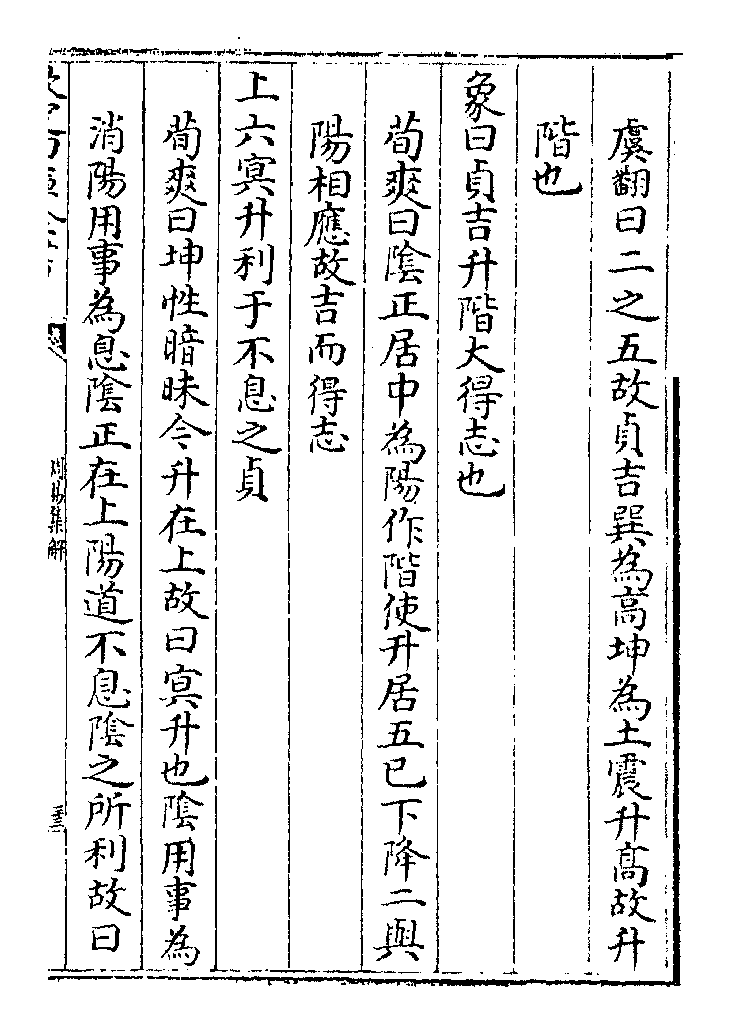 虞翻曰二之五故貞吉巽為高坤為土震升高故升
階也
象曰貞吉升階大得志也
荀爽曰陰正居中為陽作階使升居五已下降二與
陽相應故吉而得志
上六冥升利于不息之貞
荀爽曰坤性暗昧今升在上故曰冥升也陰用事為
消陽用事為息陰正在上陽道不息陰之所利故曰
周易集解